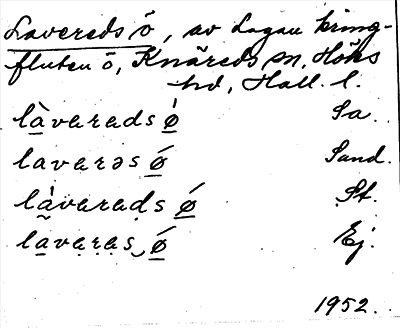 Lavereds ö, av Lagan kring-
fluten ö, Knäreds sn, Höks
hd, Hall. l.
là̱varads ø̱̀ Sa.
lavarəs ǿ̱ Sand.
là̱varaḍs ǿ̱ St.
la̰vaṛas‿ǿ̱ Ej.
1952.